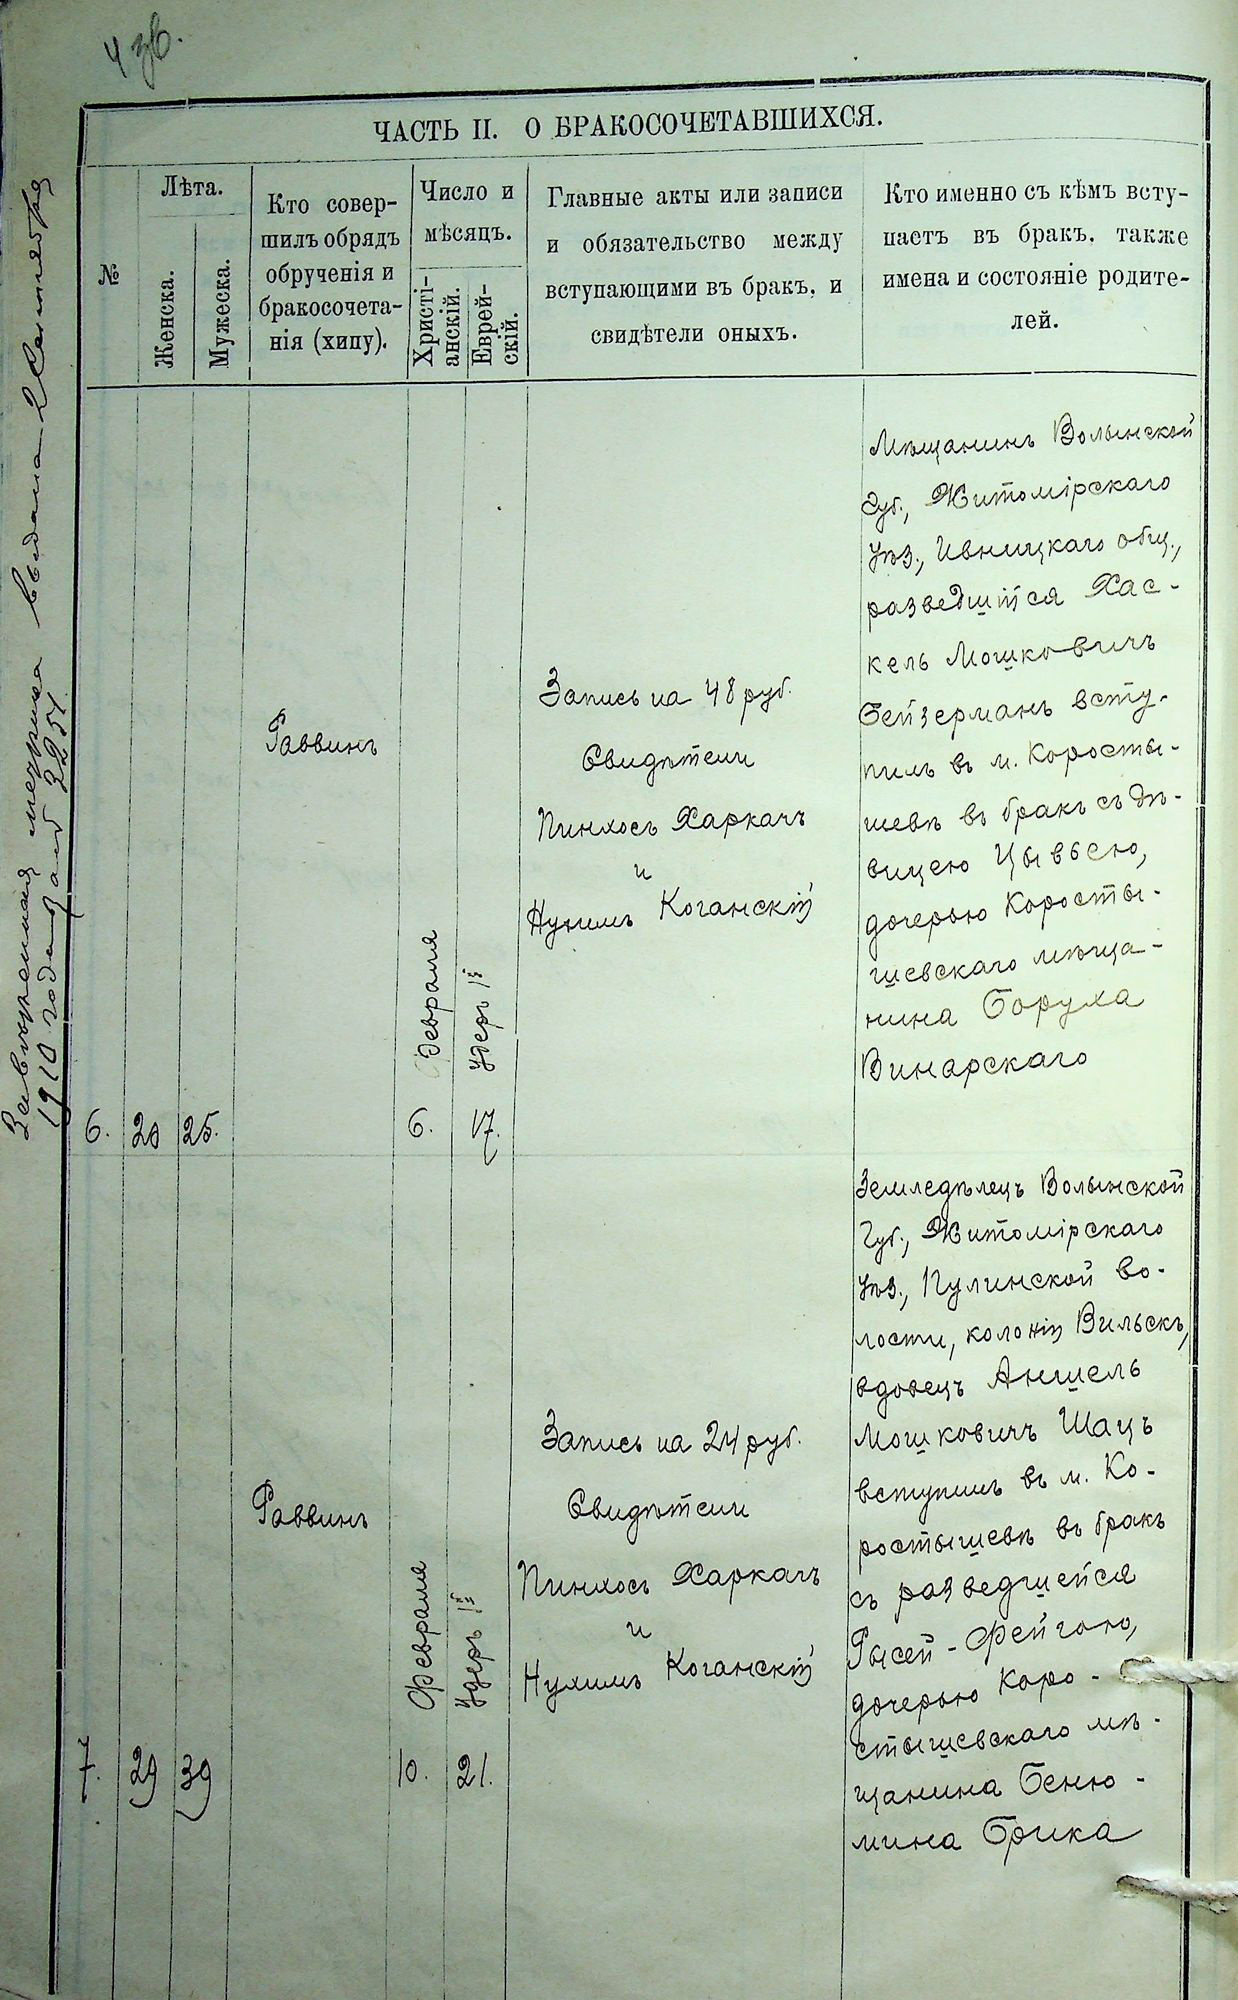 4 зв.
Завѣренная метрика выдана 2 Сентября
1910 года за № 3251.
ЧАСТЬ II. О БРАКОСОЧЕТАВШИХСЯ.
№
Лѣта.
Женска.
Мужеска.
Кто совер-
шилъ обрядъ
обрученія и
бракосочета-
нія (хипу).
Число и
мѣсяцъ.
Христі-
анскій.
Еврей-
скій.
Главные акты или записи
и обязательство между
вступающими въ бракъ, и
свидѣтели оныхъ.
Кто именно съ кѣмъ всту-
паетъ въ бракъ, также
имена и состояніе родите-
лей.
6.
20
25.
Раввинъ
Февраля
6.
Удеръ 1й
17.
Запись на 48 руб.
Свидѣтели
Пинхосъ Харкачъ
и
Нухимъ Коганскій
Мѣщанинъ Волынской
Губ., Житомірскаго
Уѣз., Ивницкаго общ.,
разведшійся Хас-
кель Мошковичъ
Бейзерманъ всту-
пилъ въ м. Коросты-
шевѣ въ бракъ съ дѣ-
вицею Цывьею,
дочерью Коросты-
шевскаго мѣща-
нина Боруха
Винарскаго
7.
29
39
Раввинъ
Февраля
10.
Удеръ 1й
21.
Запись на 24 руб.
Свидѣтели
Пинхосъ Харкачъ
и
Нухимъ Коганскій
Земледѣлецъ Волынской
Губ., Житомірскаго
Уѣз., Пулинской во-
лости, колоніи Вильскъ,
вдовецъ Аншель
Мошковичъ Шацъ
вступилъ въ м. Ко-
ростышевѣ въ бракъ
съ разведшейся
Рысей-Фейгою,
дочерью Коро-
стышевскаго мѣ-
щанина Беню-
мина Брика